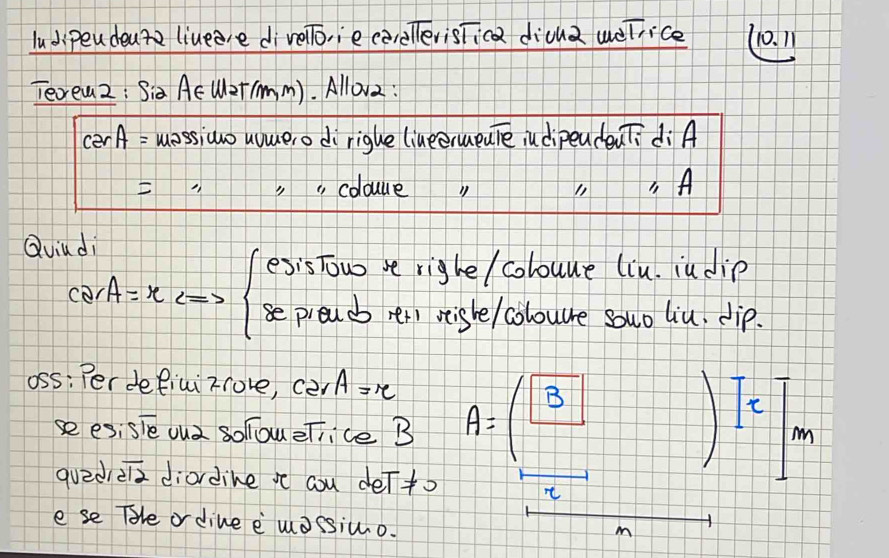 Indipendenza lineare di vettori e caratteristica di una matrice
(10.1)
Teorema: Sia A ∈ Mat(m,n). Allora:
car A = massimo numero di righe linearmente indipendenti di A
= " " " colonne " " " A
Quindi
car A = r <=> { esistono r righe/colonne lin. indip
se prendo r+1 righe/colonne sono lin. dip.
oss: Per definizione, car A = r
se esiste una sottomatrice B
quadrata di ordine r con det ≠ 0
e se tale ordine è massimo.
A = ( B ) r m
r
n